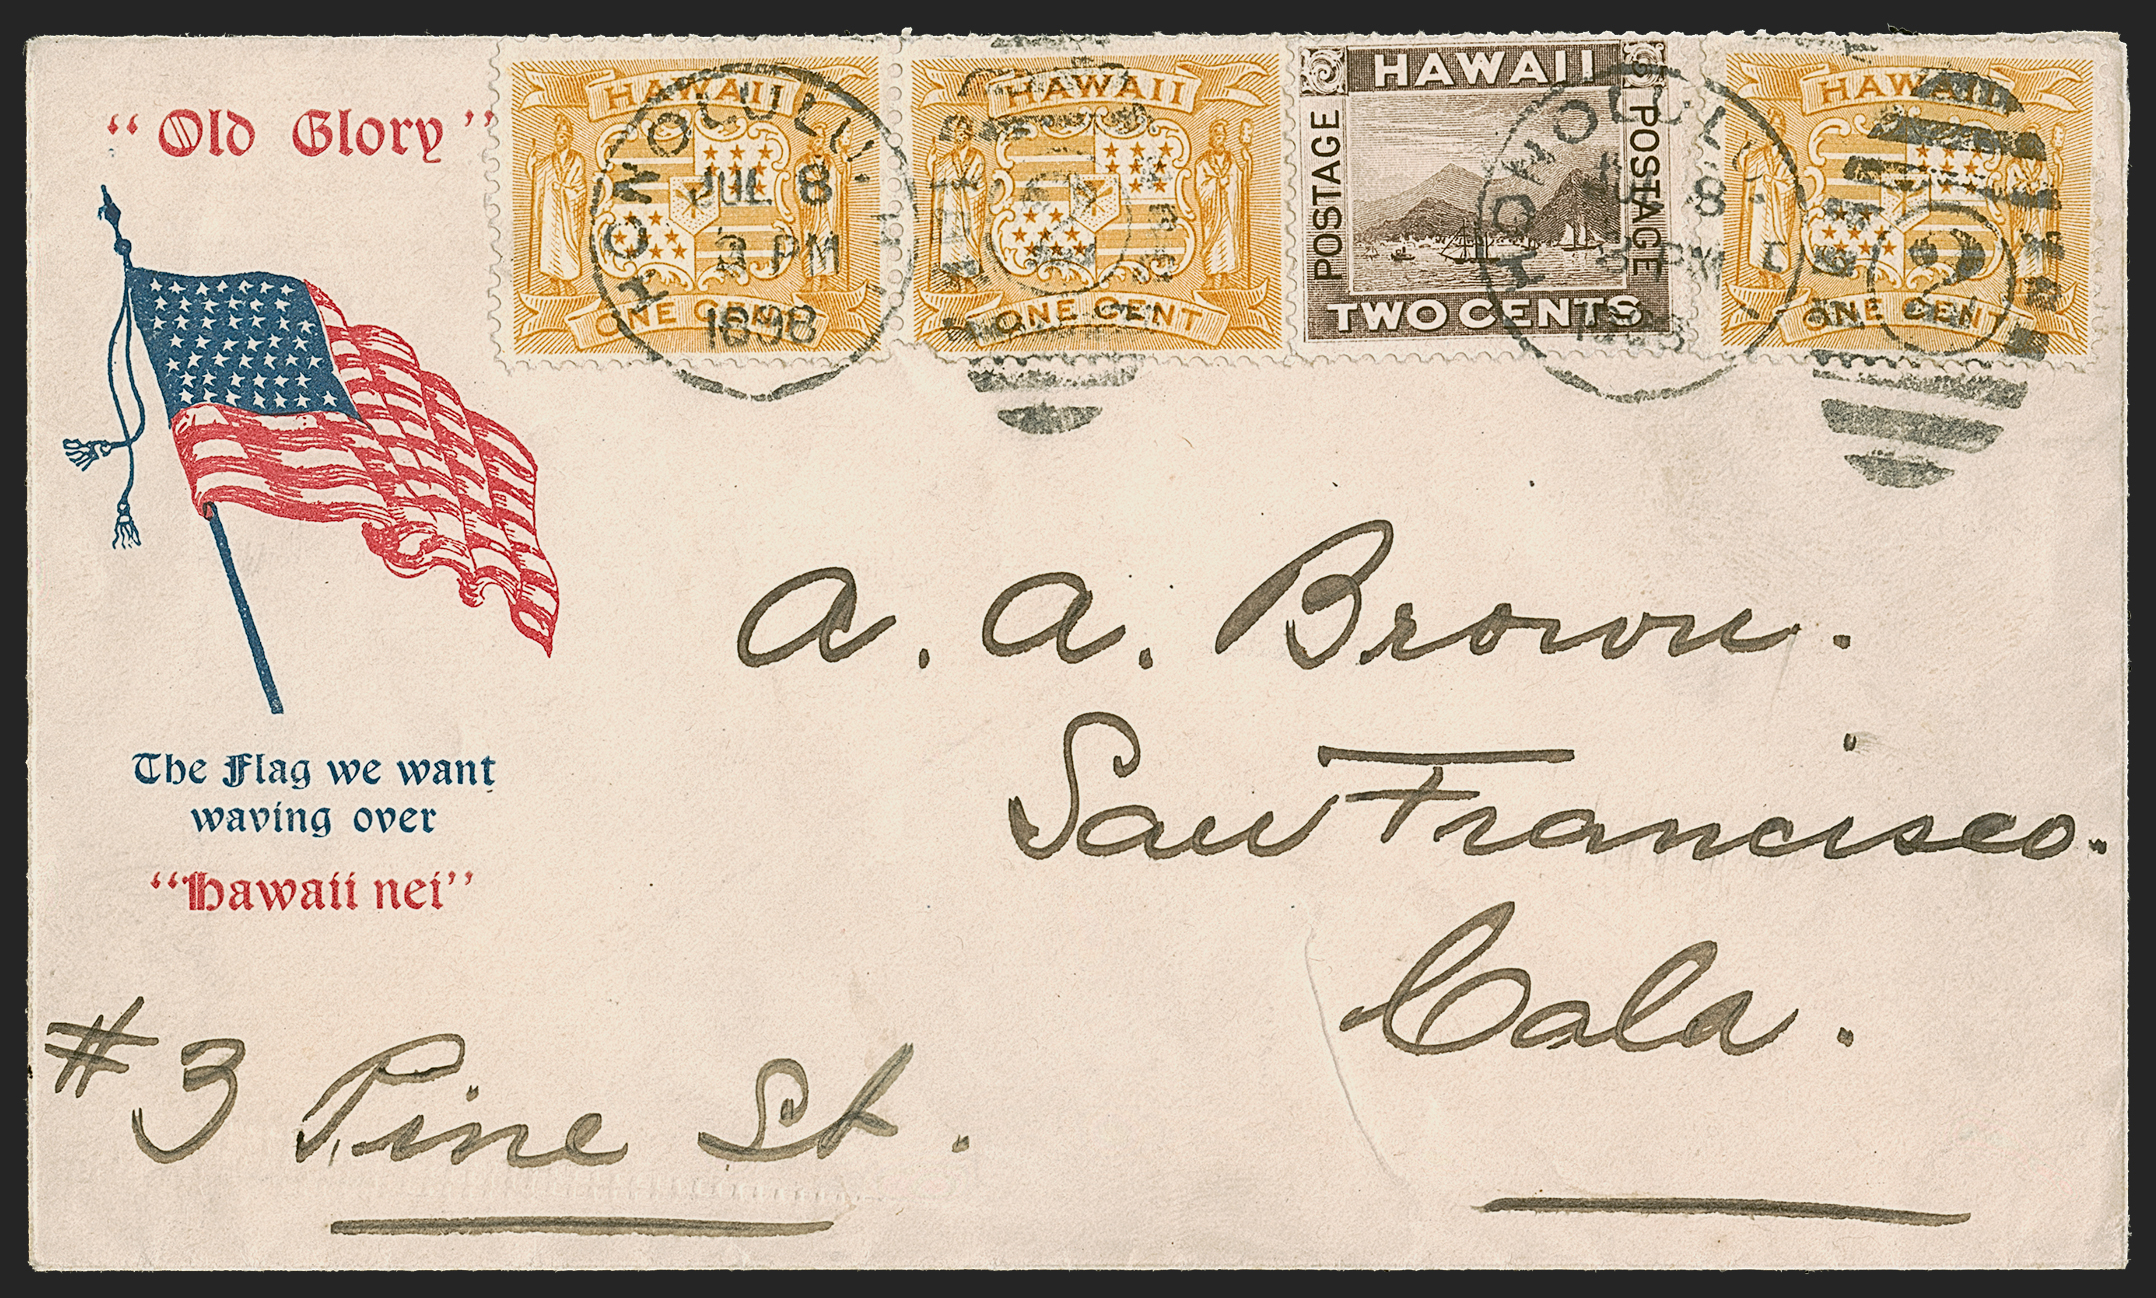 “Old Glory”
HAWAII
ONE CENT
HAWAII
ONE CENT
HAWAII
POSTAGE
POSTAGE
TWO CENTS
HAWAII
ONE CENT
HONOLULU
JUL 8
3 PM
1898
HONOLULU
8
PM
2
The Flag we want
waving over
“Hawaii nei”
A. A. Brown.
San Francisco.
Cala.
#3 Pine St.